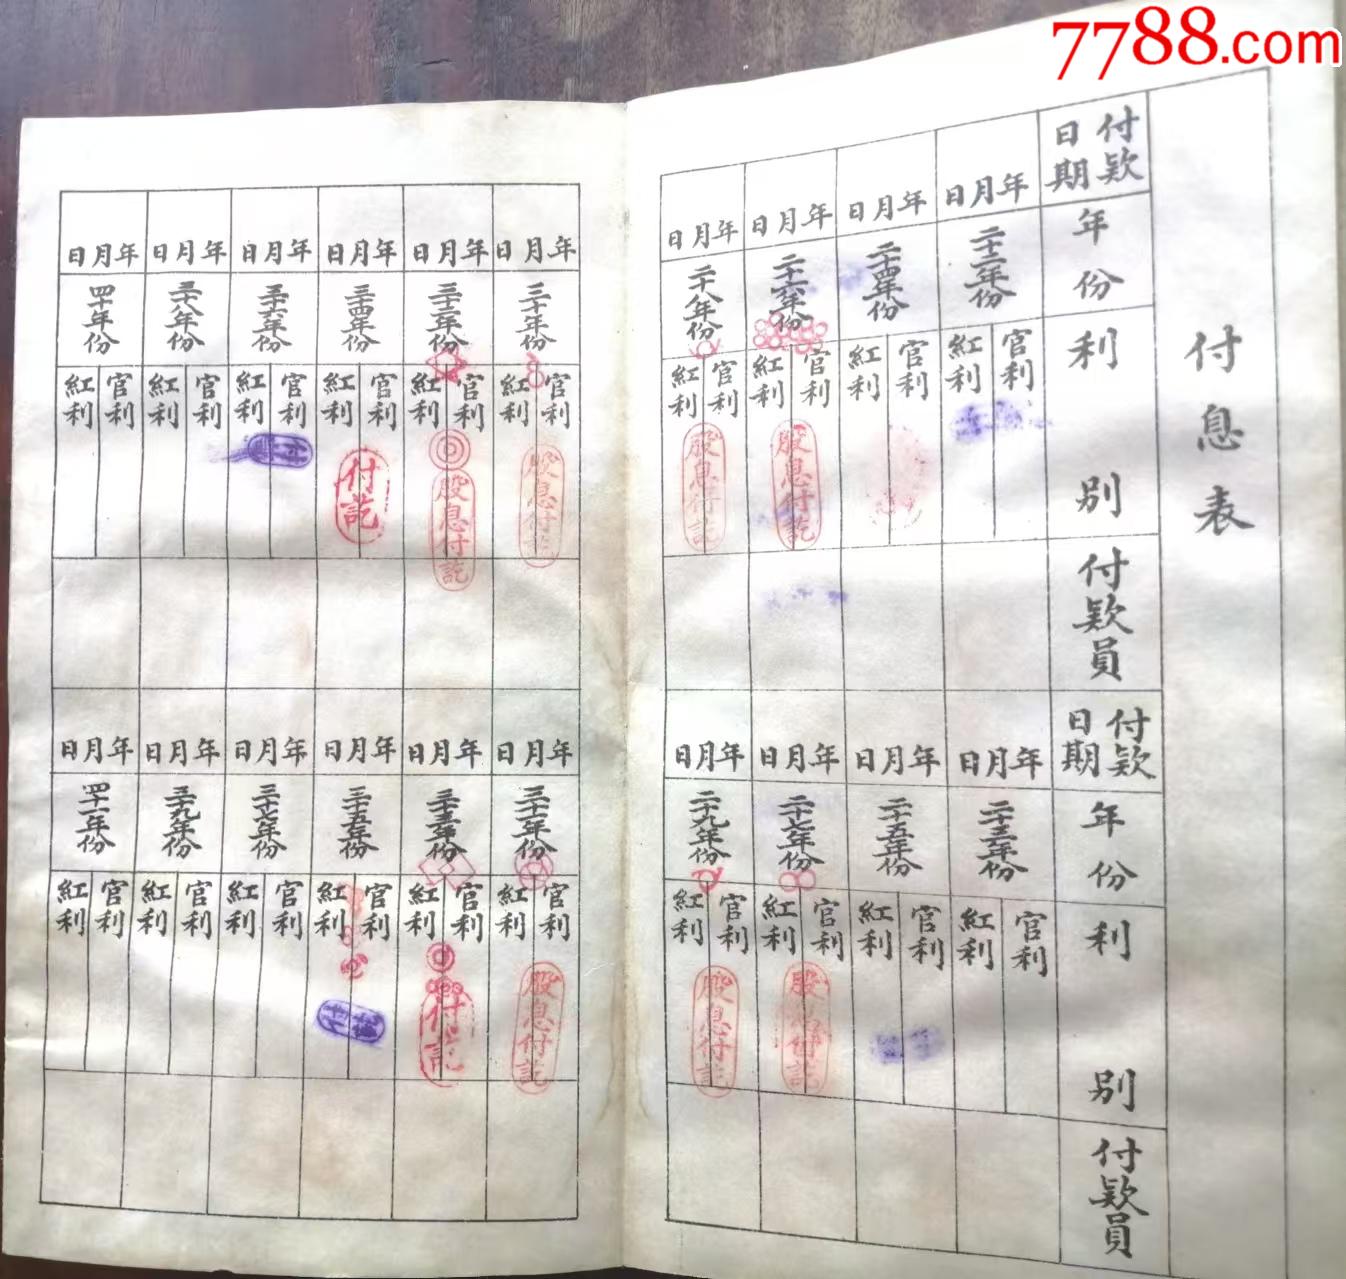 7788.com
付息表
付欵日期
年份
利別
付欵員
年月日
二十二年份
官利
紅利
年月日
二十四年份
官利
紅利
年月日
二十六年份
官利
紅利
股息付訖
年月日
二十八年份
官利
紅利
股息付訖
付欵日期
年份
利別
付欵員
年月日
二十三年份
官利
紅利
年月日
二十五年份
官利
紅利
年月日
二十七年份
官利
紅利
股息付訖
年月日
二十九年份
官利
紅利
股息付訖
年月日
三十年份
官利
紅利
股息付訖
年月日
三十二年份
官利
紅利
股息付訖
年月日
三十四年份
官利
紅利
付訖
年月日
三十六年份
官利
紅利
年月日
三十八年份
官利
紅利
年月日
四十年份
官利
紅利
年月日
三十一年份
官利
紅利
股息付訖
年月日
三十三年份
官利
紅利
付訖
年月日
三十五年份
官利
紅利
年月日
三十七年份
官利
紅利
年月日
三十九年份
官利
紅利
年月日
四十一年份
官利
紅利